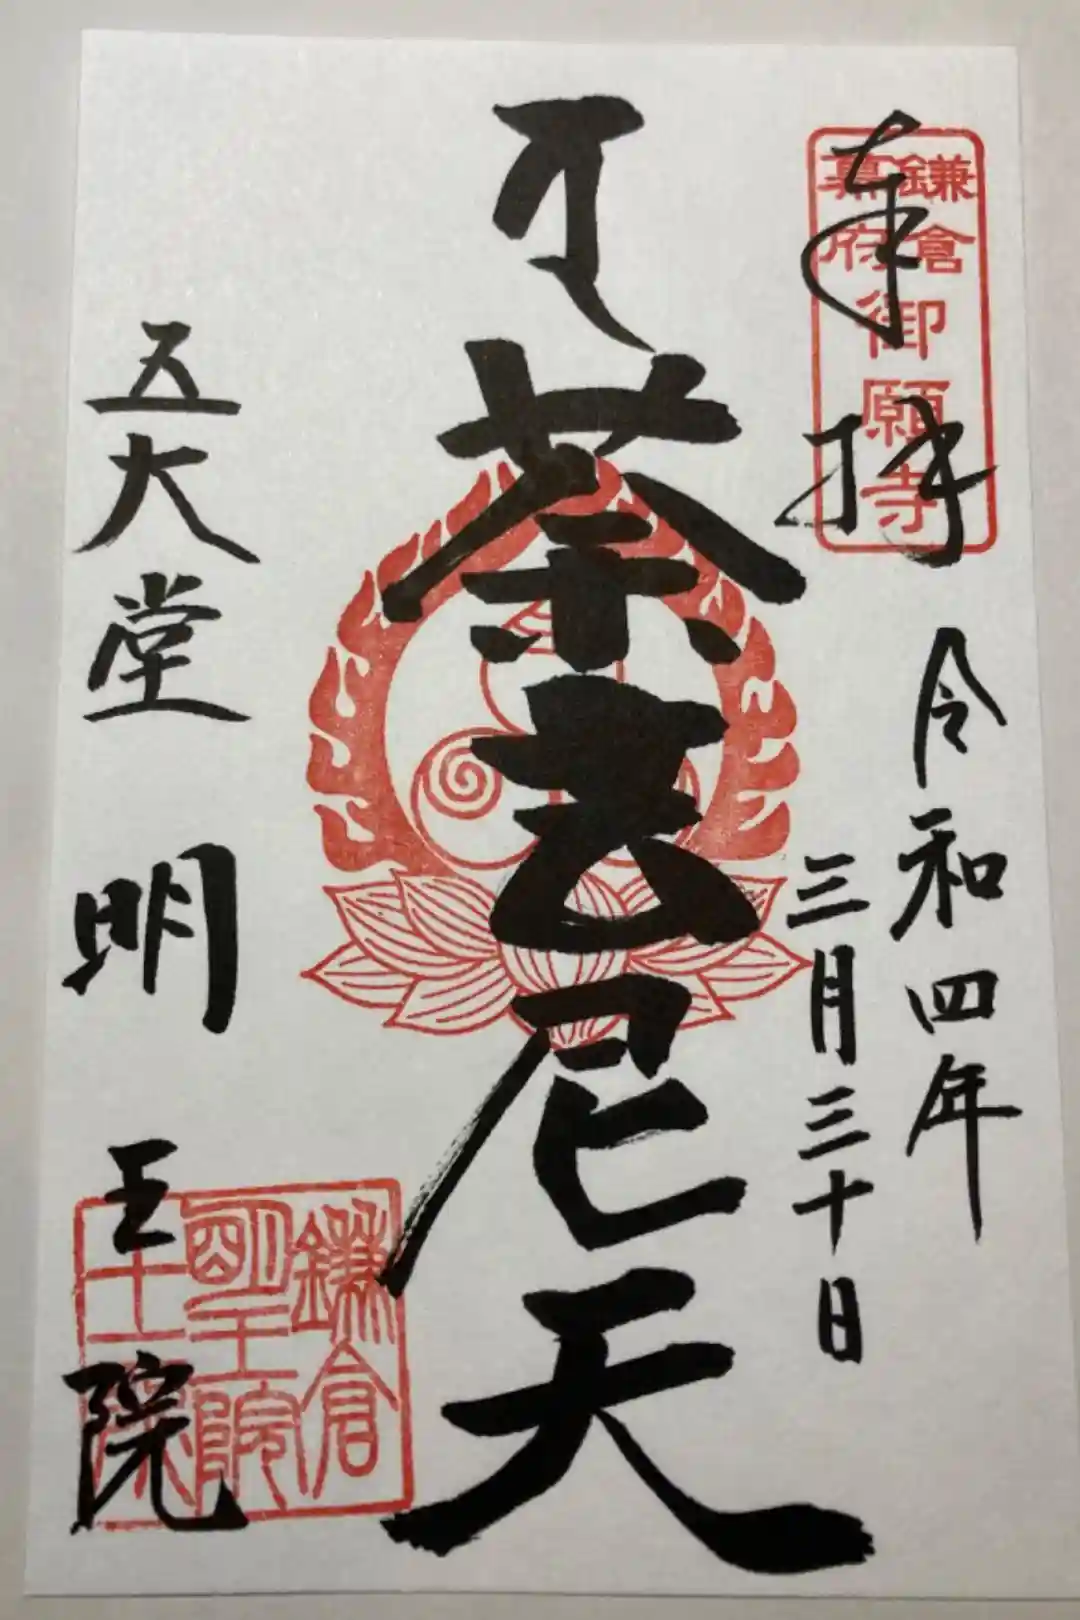 奉拝
鎌倉
幕府
御願寺
令和四年
三月三十日
荼吉尼天
五大堂 明王院
鎌倉
明王院